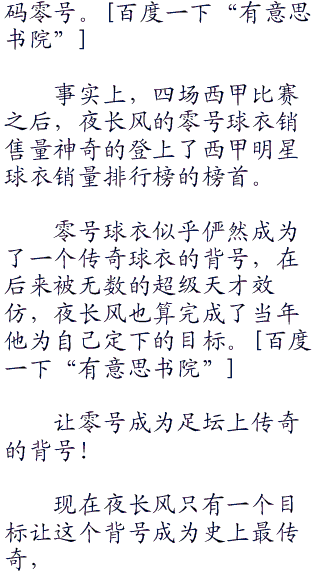 码零号。[百度一下“有意思
书院”]
事实上，四场西甲比赛
之后，夜长风的零号球衣销
售量神奇的登上了西甲明星
球衣销量排行榜的榜首。
零号球衣似乎俨然成为
了一个传奇球衣的背号，在
后来被无数的超级天才效
仿，夜长风也算完成了当年
他为自己定下的目标。[百度
一下“有意思书院”]
让零号成为足坛上传奇
的背号！
现在夜长风只有一个目
标让这个背号成为史上最传
奇，